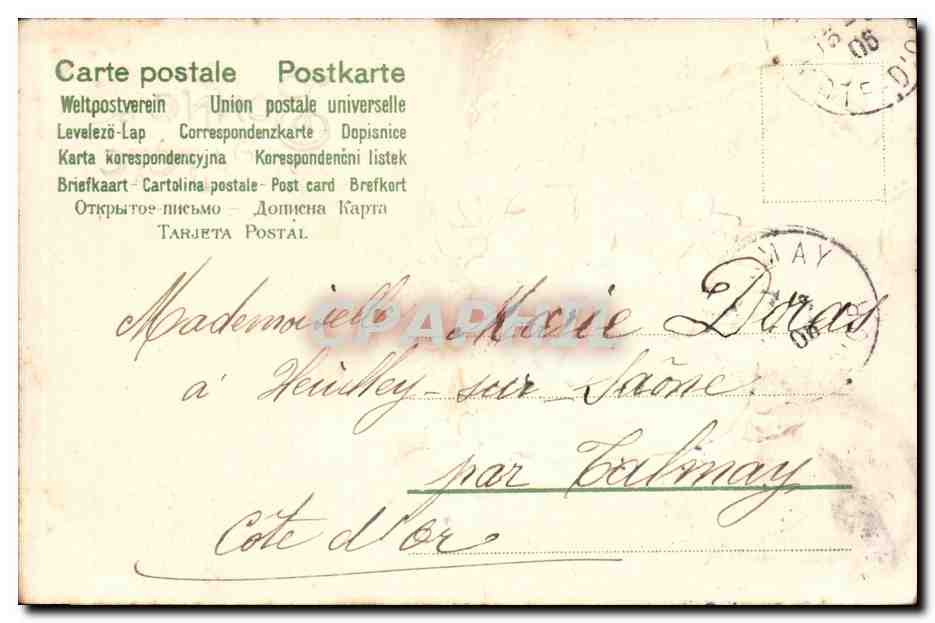 Carte postale Postkarte
Weltpostverein Union postale universelle
Levelező-Lap Correspondenzkarte - Dopisnice
Karta korespondencyjna Korespondenčni listek
Briefkaart - Cartolina postale - Post card Brefkort
Открытое письмо – Дописна Карта
TARJETA POSTAL
06
MAY
06
Mademoiselle Marie Doras
à Heuilley-sur-Saône
par Talmay
Côte d'or
CPAPHIL